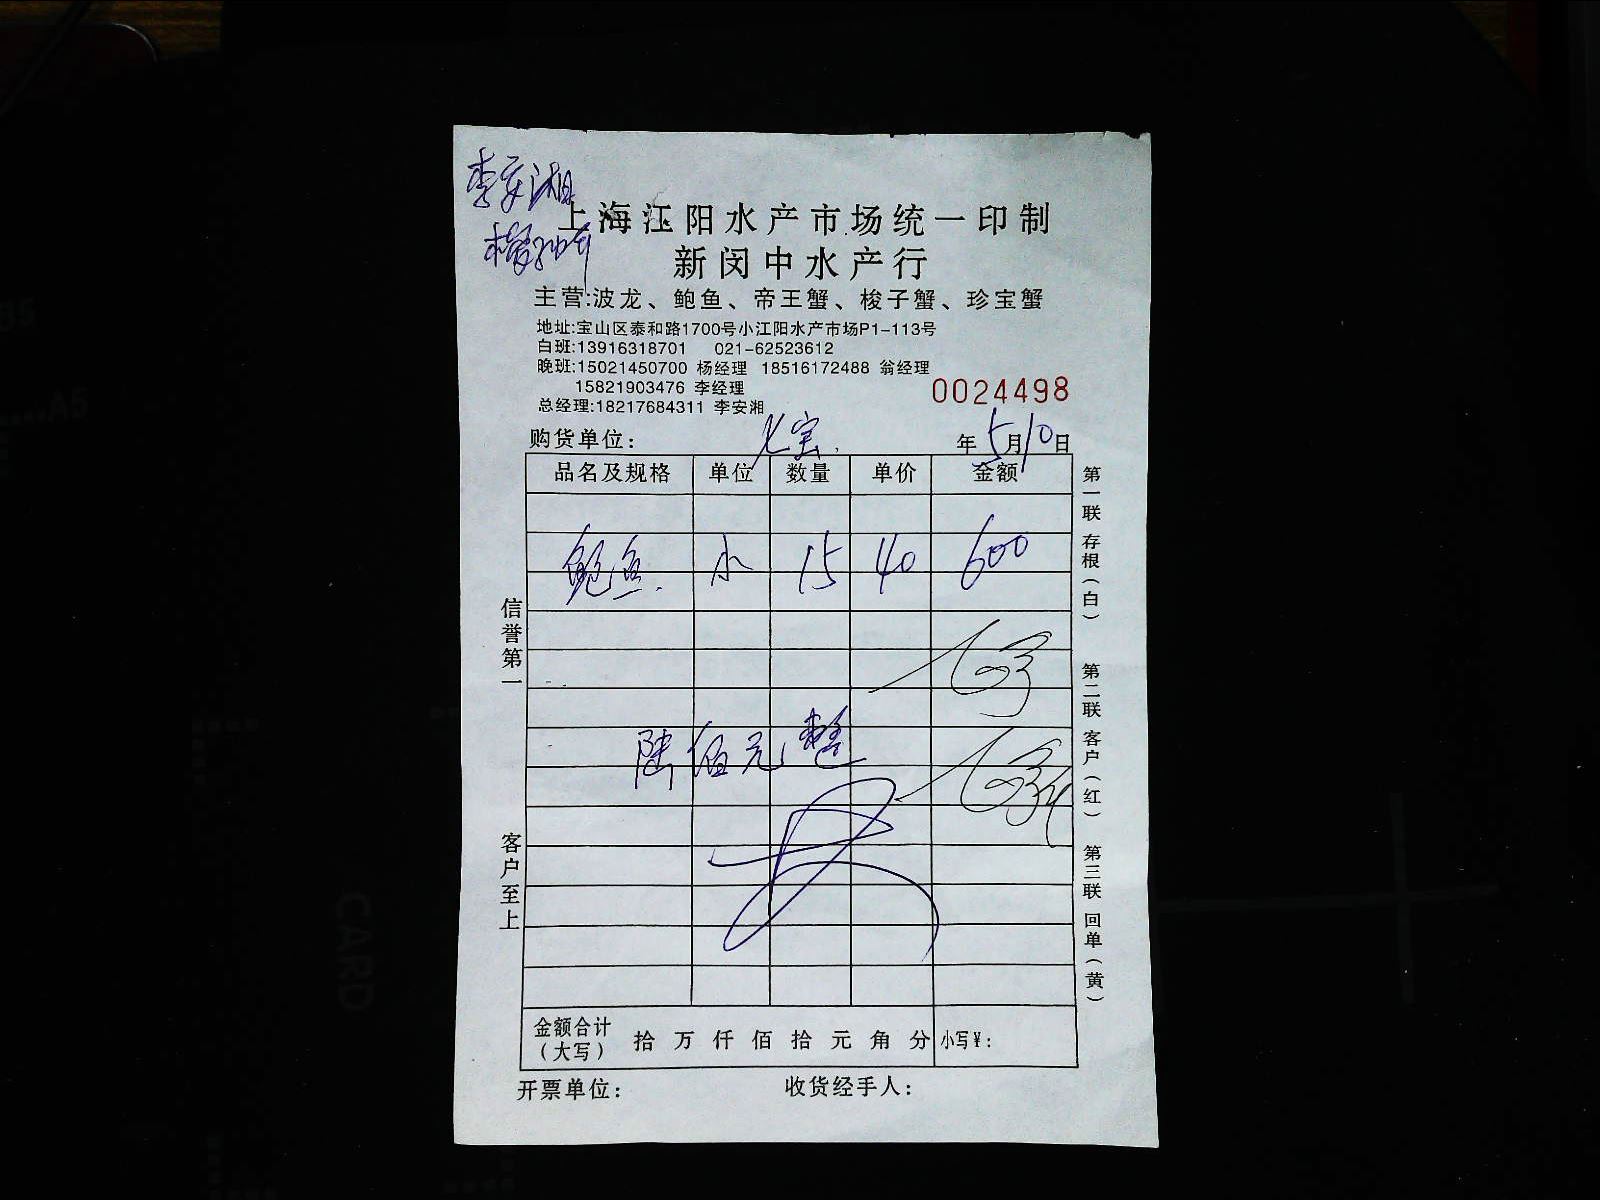 李安湘
上海江阳水产市场统一印制
新闵中水产行
主营:波龙、鲍鱼、帝王蟹、梭子蟹、珍宝蟹
地址:宝山区泰和路1700号小江阳水产市场P1-113号
白班:13916318701 021-62523612
晚班:15021450700 杨经理 18516172488 翁经理
15821903476 李经理
0024498
总经理:18217684311 李安湘
购货单位: 七宝 年 5月10日
品名及规格 单位 数量 单价 金额
鲍鱼 小 15 40 600
陆佰元整
金额合计(大写) 拾 万 仟 佰 拾 元 角 分 小写¥:
开票单位: 收货经手人:
信誉第一
客户至上
第一联 存根(白)
第二联 客户(红)
第三联 回单(黄)
B5
A5
CARD